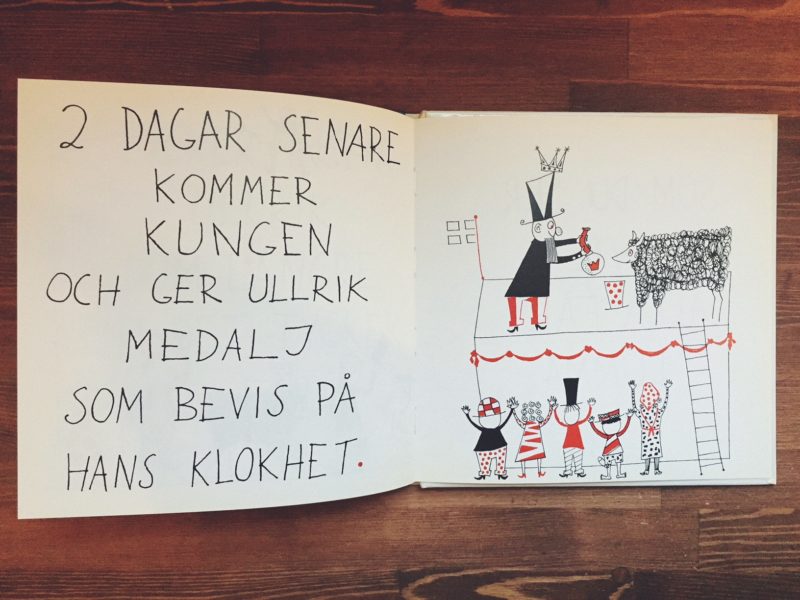 2 DAGAR SENARE
KOMMER
KUNGEN
OCH GER ULLRIK
MEDALJ
SOM BEVIS PÅ
HANS KLOKHET.